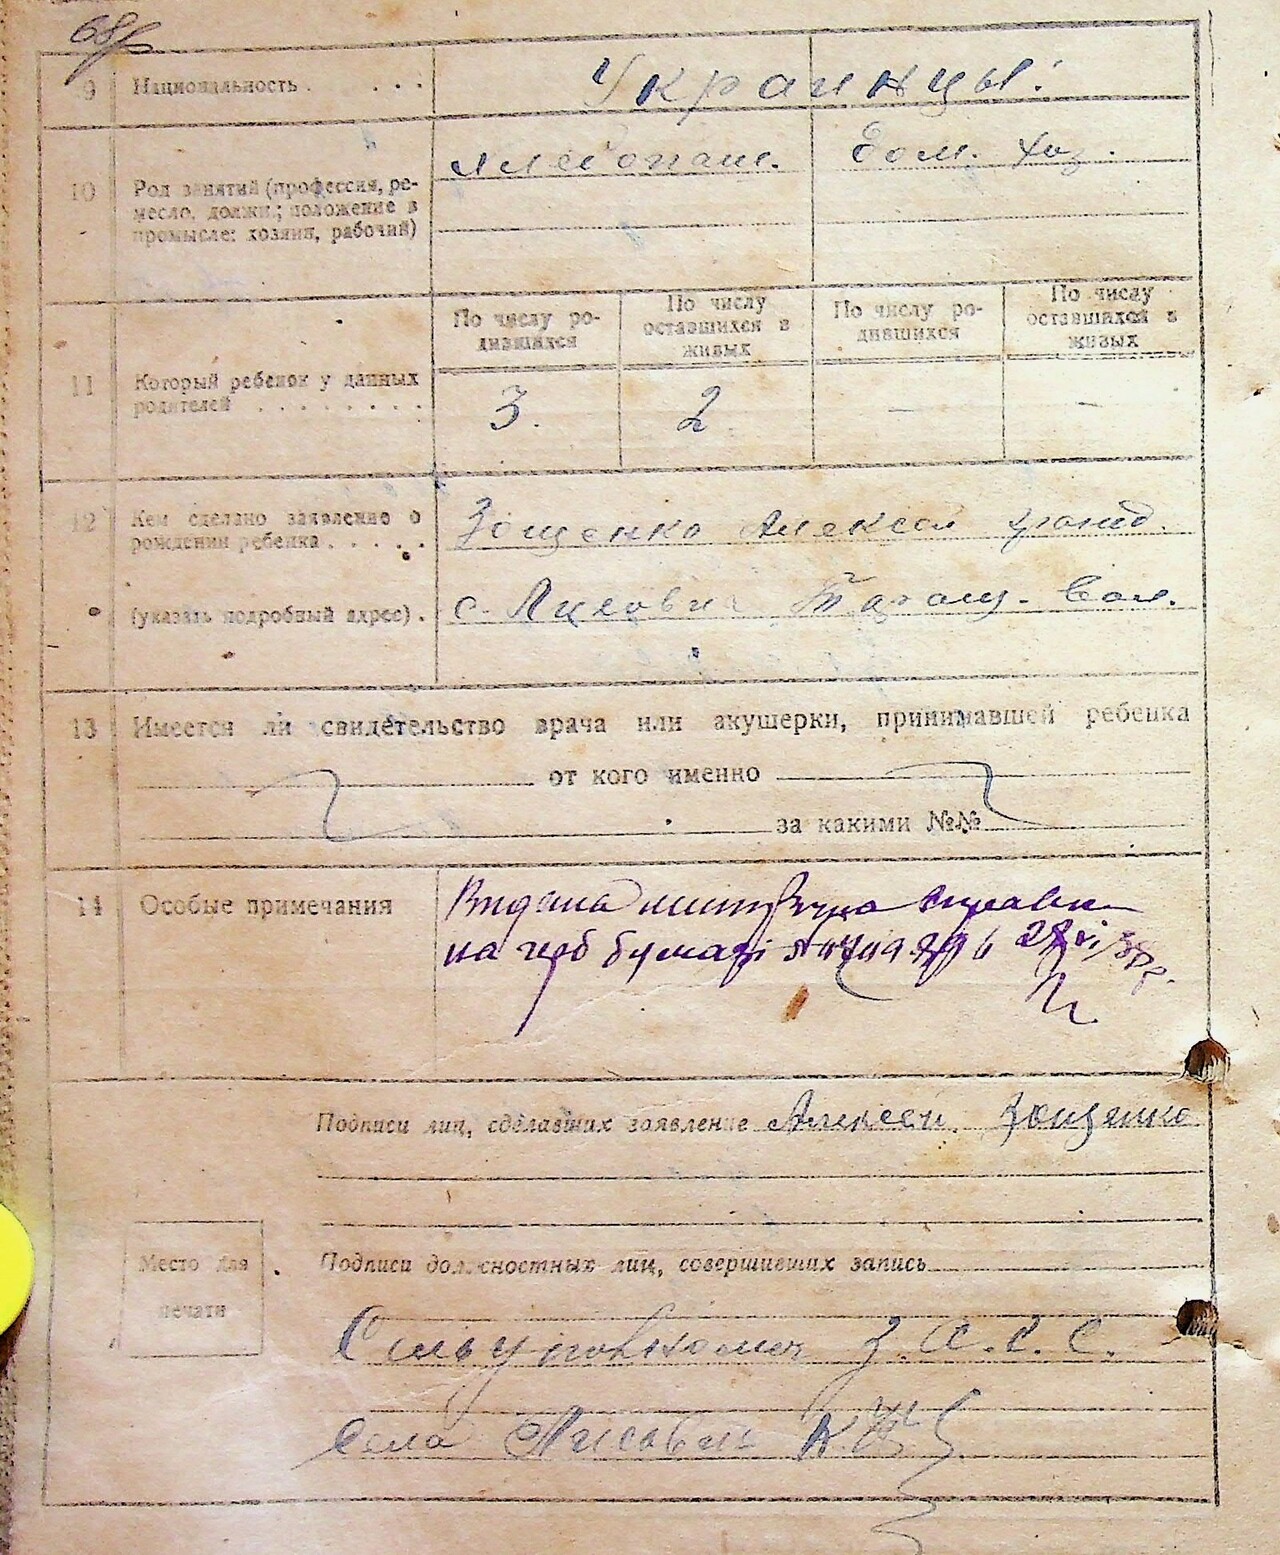 68
9 Национальность . . . . Украинцы.
10 Род занятий (профессия, ре-
месло, должн.; положение в
промысле: хозяин, рабочий)
хлебопаш. дом. хоз.
По числу ро-
дившихся
По числу
оставшихся в
живых
По числу ро-
дившихся
По числу
оставшихся в
живых
11 Который ребенок у данных
родителей . . . . . . . .
3. 2 — -
12 Кем сделано заявление о
рождении ребенка . . . . .
Ющенко Алексей
(указать подробный адрес) .
с. Лисович Таращ. вол.
13 Имеется ли свидетельство врача или акушерки, принимавшей ребенка
от кого именно
за какими №№
14 Особые примечания
Видана
на герб бумазі
Подписи лиц, сделавших заявление Алексей Ющенко
Место для
печати
Подписи должностных лиц, совершивших запись
З.А.Г.С.
села Лисович